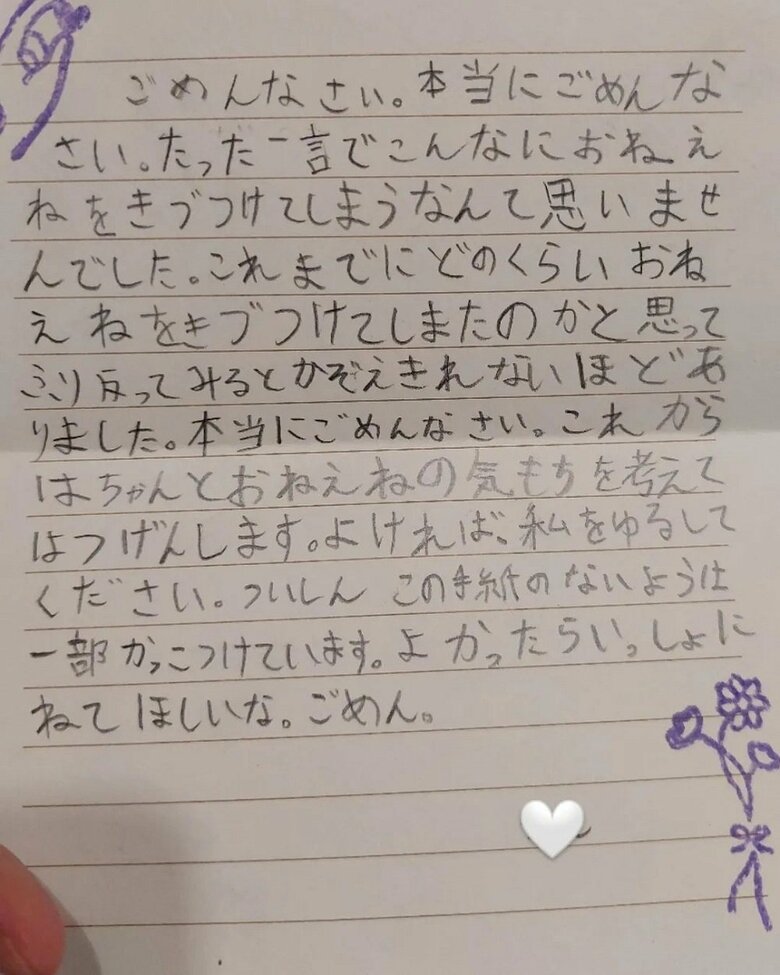 ごめんなさい。本当にごめんな
さい。たった一言でこんなにおねえ
ねをきづつけてしまうなんて思いませ
んでした。これまでにどのくらいおね
えねをきづつけてしまたのかと思って
ふり反ってみるとかぞえきれないほどあ
りました。本当にごめんなさい。これから
はちゃんとおねえねの気もちを考えて
はつげんします。よければ、私をゆるして
ください。ついしん この手紙のないようは
一部かっこつけています。よかったらいっしょに
ねてほしいな。ごめん。